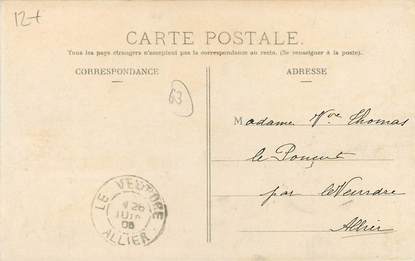 12+
CARTE POSTALE.
Tous les pays étrangers n'acceptent pas la correspondance au recto. (Se renseigner à la poste).
CORRESPONDANCE
ADRESSE
63
Madame Vve Thomas
le
par le Veurdre
Allier
LE VEURDRE
26
JUIN
06
ALLIER